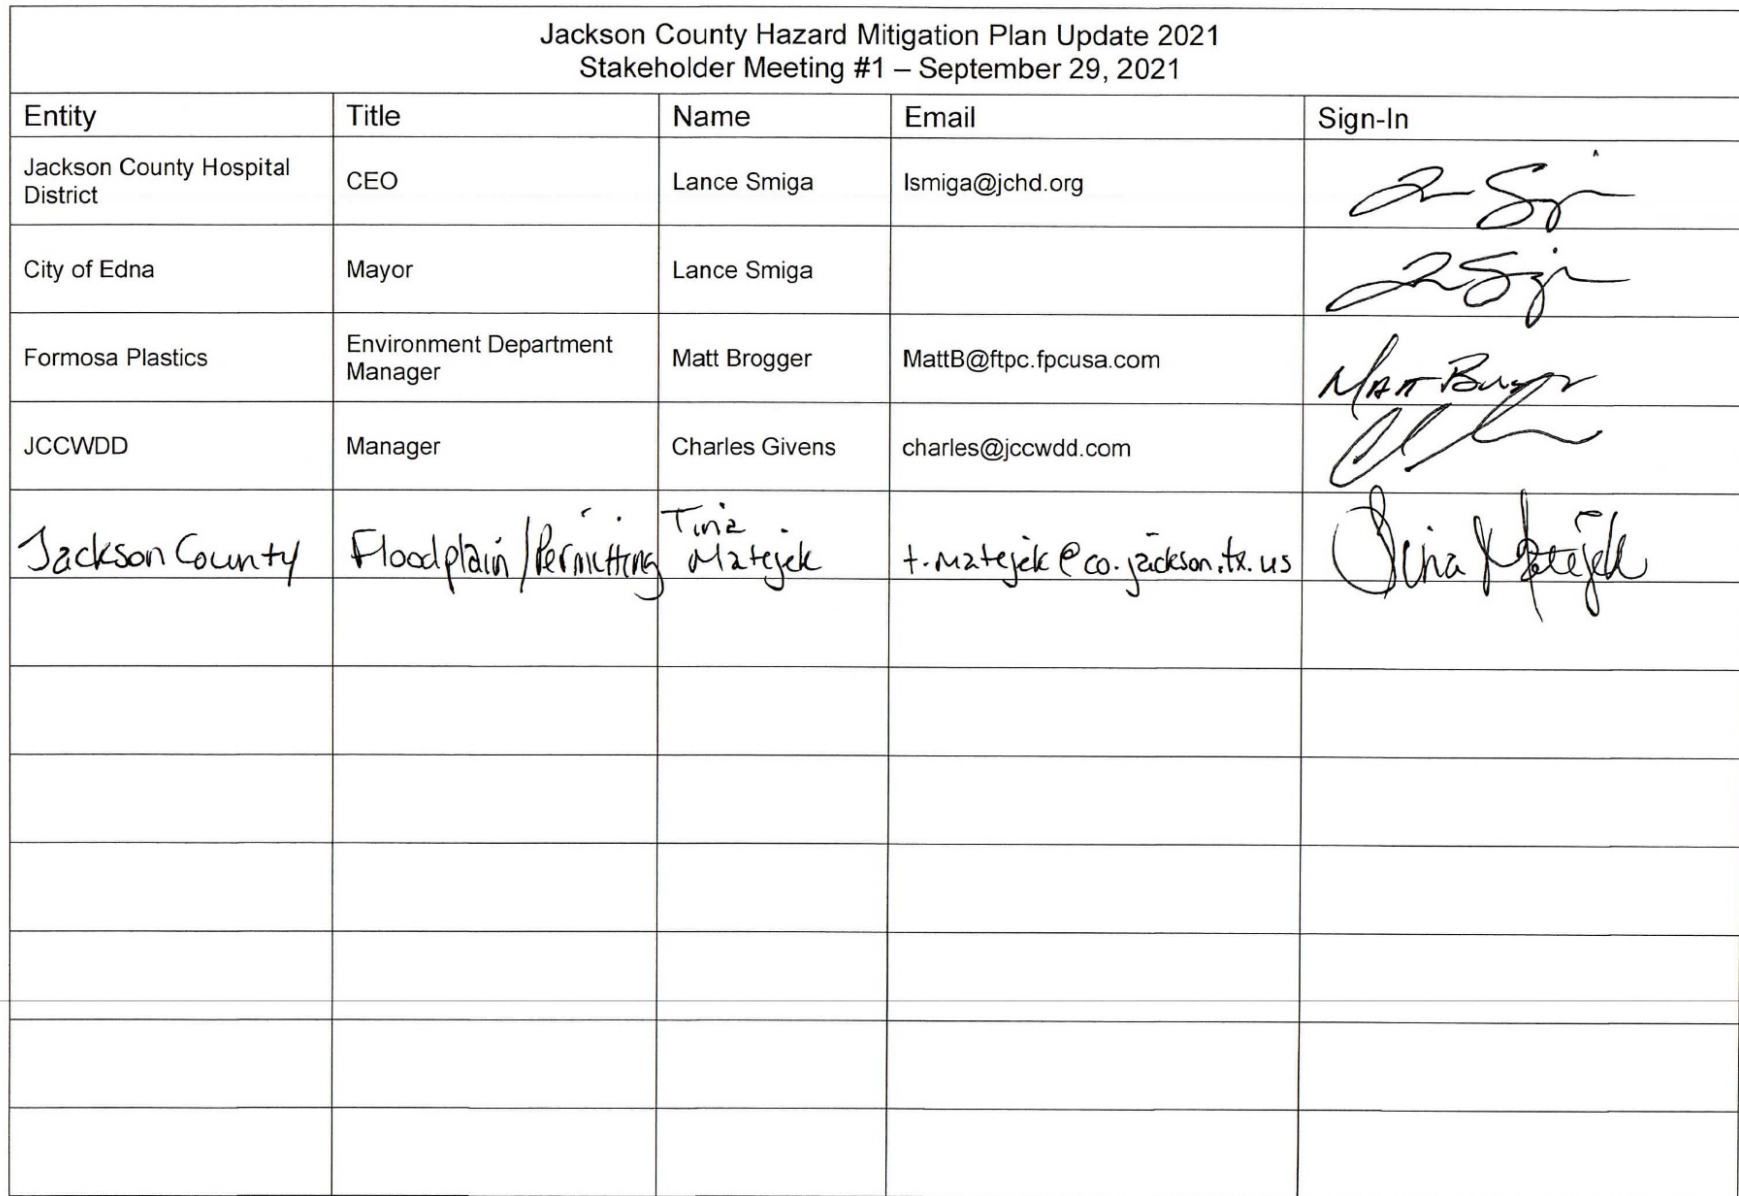 Jackson County Hazard Mitigation Plan Update 2021
Stakeholder Meeting #1 – September 29, 2021
Entity Title Name Email Sign-In
Jackson County Hospital
District
CEO
Lance Smiga
lsmiga@jchd.org
City of Edna
Mayor
Lance Smiga
Formosa Plastics
Environment Department
Manager
Matt Brogger
MattB@ftpc.fpcusa.com
Matt
JCCWDD
Manager
Charles Givens
charles@jccwdd.com
Jackson County
Floodplain/Permitting
Tina
Matejek
t.matejek@co.jackson.tx.us
Tina Matejek